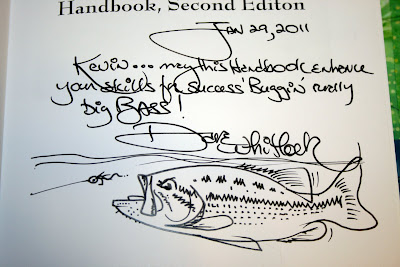 Handbook, Second Editon
JAN 29, 2011
Kevin... may this Handbook enhance
your skills for success 'Buggin' really
Big BASS!
Dave Whitlock